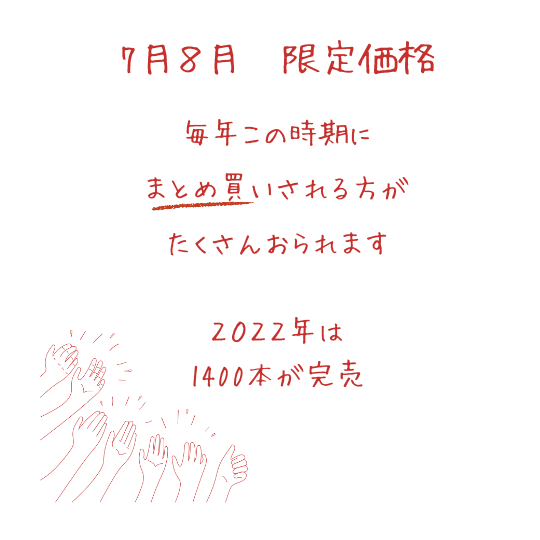 7月8月　限定価格
毎年この時期に
まとめ買いされる方が
たくさんおられます
2022年は
1400本が完売